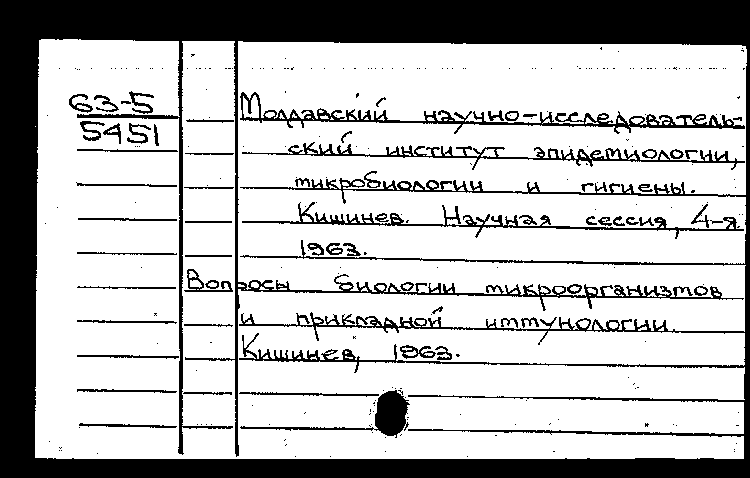 63-5
5451
Молдавский научно-исследователь-
ский институт эпидемиологии,
микробиологии и гигиены.
Кишинев. Научная сессия, 4-я.
1963.
Вопросы биологии микроорганизмов
и прикладной иммунологии.
Кишинев, 1963.